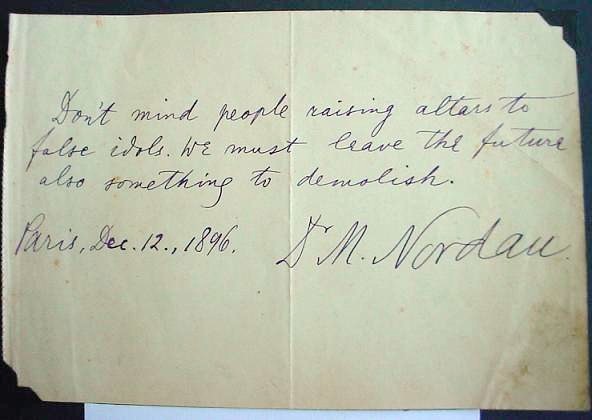 Don't mind people raising altars to
false idols. We must leave the future
also something to demolish.
Paris, Dec. 12., 1896. Dr M. Nordau.